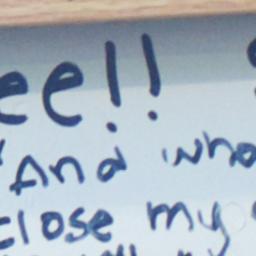 ee!!
"And who
close my